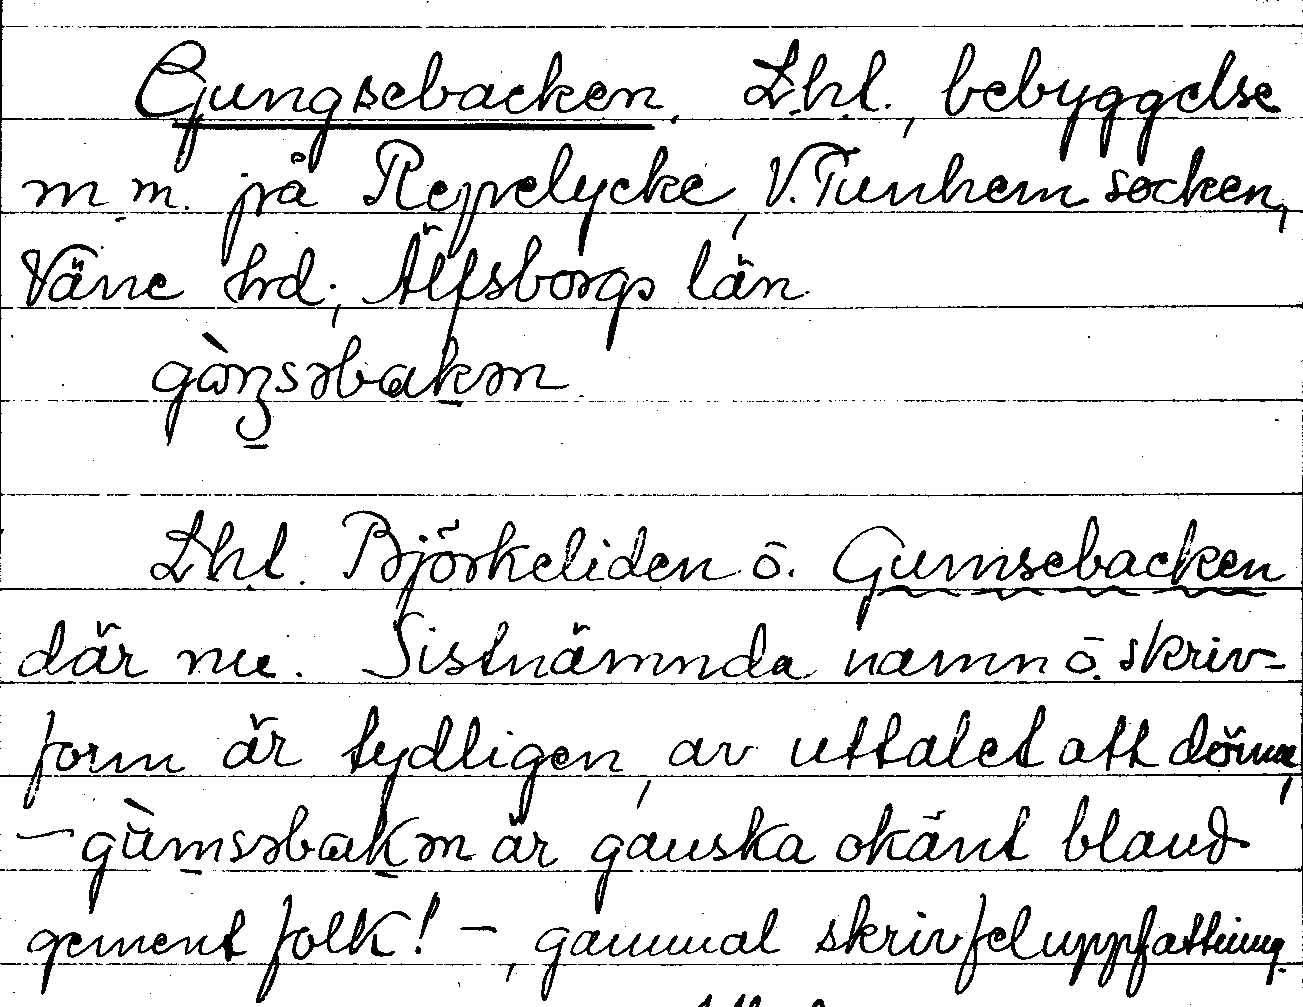 Gungsebacken. Lht., bebyggelse
m. m. på Repelycke, V. Tunhem socken,
Väne hrd., Älfsborgs län.
gὼŋsəbakən.
Lht. Björkeliden o. Gumsebacken
där nu. Sistnämnda namn o. skriv-
form är tydligen, av uttalet att döma,
– gùmsəbakən är ganska okänt bland
gement folk! –, gammal skrivfeluppfattning.